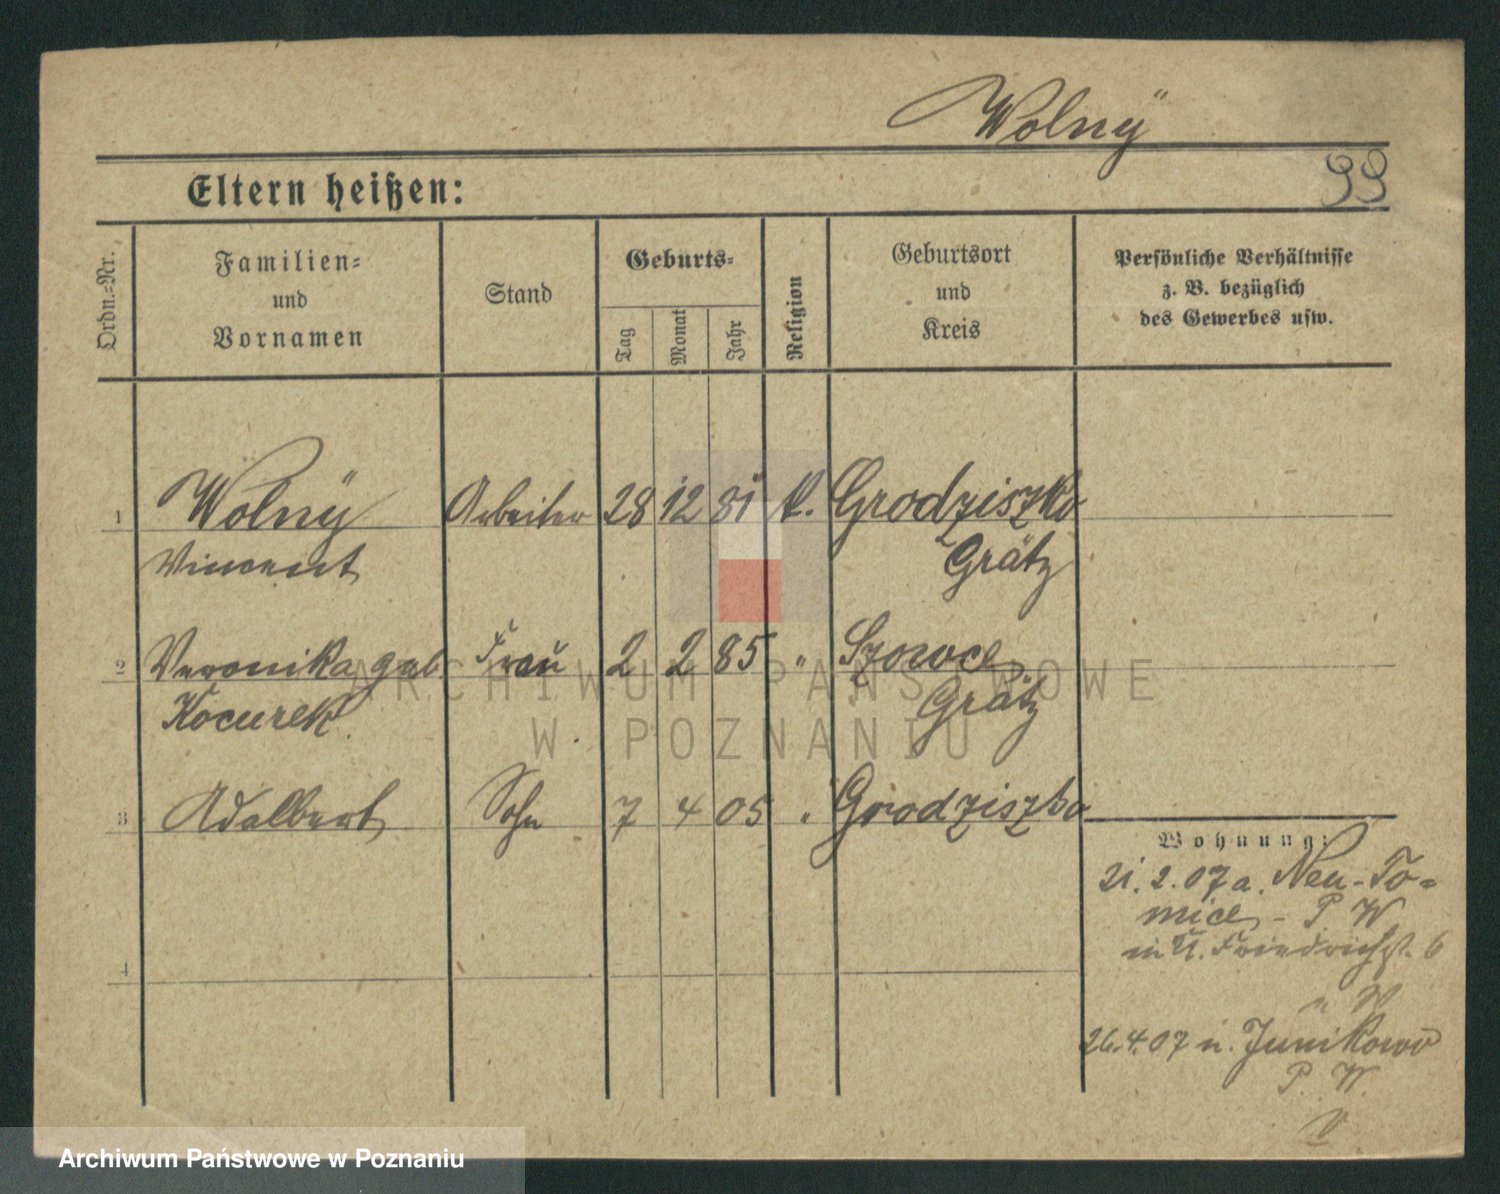 Wolnÿ
99
Eltern heißen:
Ordn.-Nr.
Familien-
und
Vornamen
Stand
Geburts-
Tag
Monat
Jahr
Religion
Geburtsort
und
Kreis
Persönliche Verhältnisse
z. B. bezüglich
des Gewerbes usw.
1 Wolnÿ Arbeiter 28 12 81 k. Grodziszko
Vincent Grätz
2 Veronika geb. Frau 2 2 85 "
Grätz
Kocurek
3 Adalbert Sohn 7 4 05 " Grodziszko
4
Wohnung:
21. 2. 07 a. Neu-To-
P W
Friedrichst. 6
26. 4. 07 n. Junikowo
P. W.
ARCHIWUM PAŃSTWOWE
W POZNANIU
Archiwum Państwowe w Poznaniu